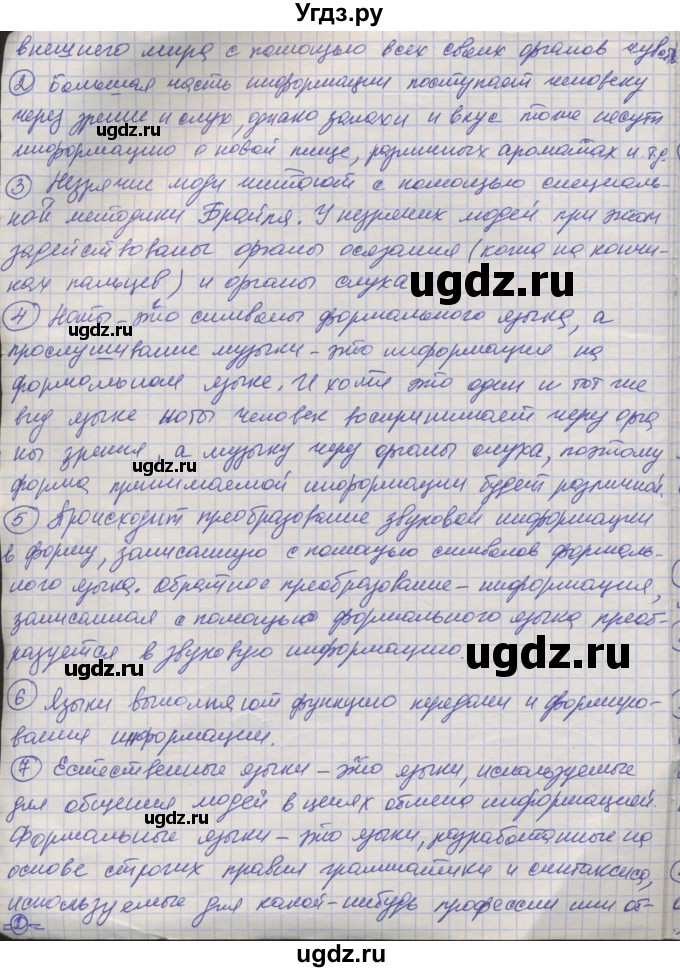 Угдз.ру
внешнего мира с помощью всех своих органов чувств
② Большая часть информации поступает человеку
через зрение и слух, однако запахи и вкус тоже несут
ugdz.ru ugdz.ru
информацию о новой пище, различных ароматах и т.д.
③ Незрячие люди читают с помощью специаль-
ной методики Брайля. У незрячих людей при этом
задействованы органы осязания (кожа на кончи-
ках пальцев) и органы слуха
ugdz.ru ugdz.ru
④ Ноты – это символы формального языка, а
прослушивание музыки – это информация на
формальном языке. И хотя это один и тот же
вид языке ноты человек воспринимает через орга
ны зрения, а музыку через органы слуха, поэтому
ugdz.ru ugdz.ru
форма принимаемой информации будет различной.
⑤ Происходит преобразование звуковой информации
в форму, записанную с помощью символов формаль-
ного языка. Обратное преобразование – информация,
записанная с помощью формального языка преоб-
разуется в звуковую информацию.
ugdz.ru ugdz.ru
⑥ Языки выполняют функцию передачи и формиро-
вания информации.
⑦ Естественные языки – это языки, используемые
для общения людей в целях обмена информацией.
Формальные языки – это языки, разработанные на
основе строгих правил грамматики и синтаксиса,
используемые для какой-нибудь профессии или от-
ugdz.ru ugdz.ru